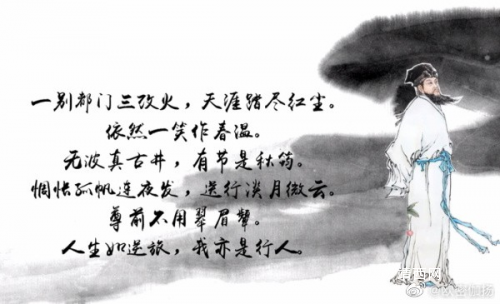 一别都门三改火，天涯踏尽红尘。
依然一笑作春温。
无波真古井，有节是秋筠。
惆怅孤帆连夜发，送行淡月微云。
尊前不用翠眉颦。
人生如逆旅，我亦是行人。